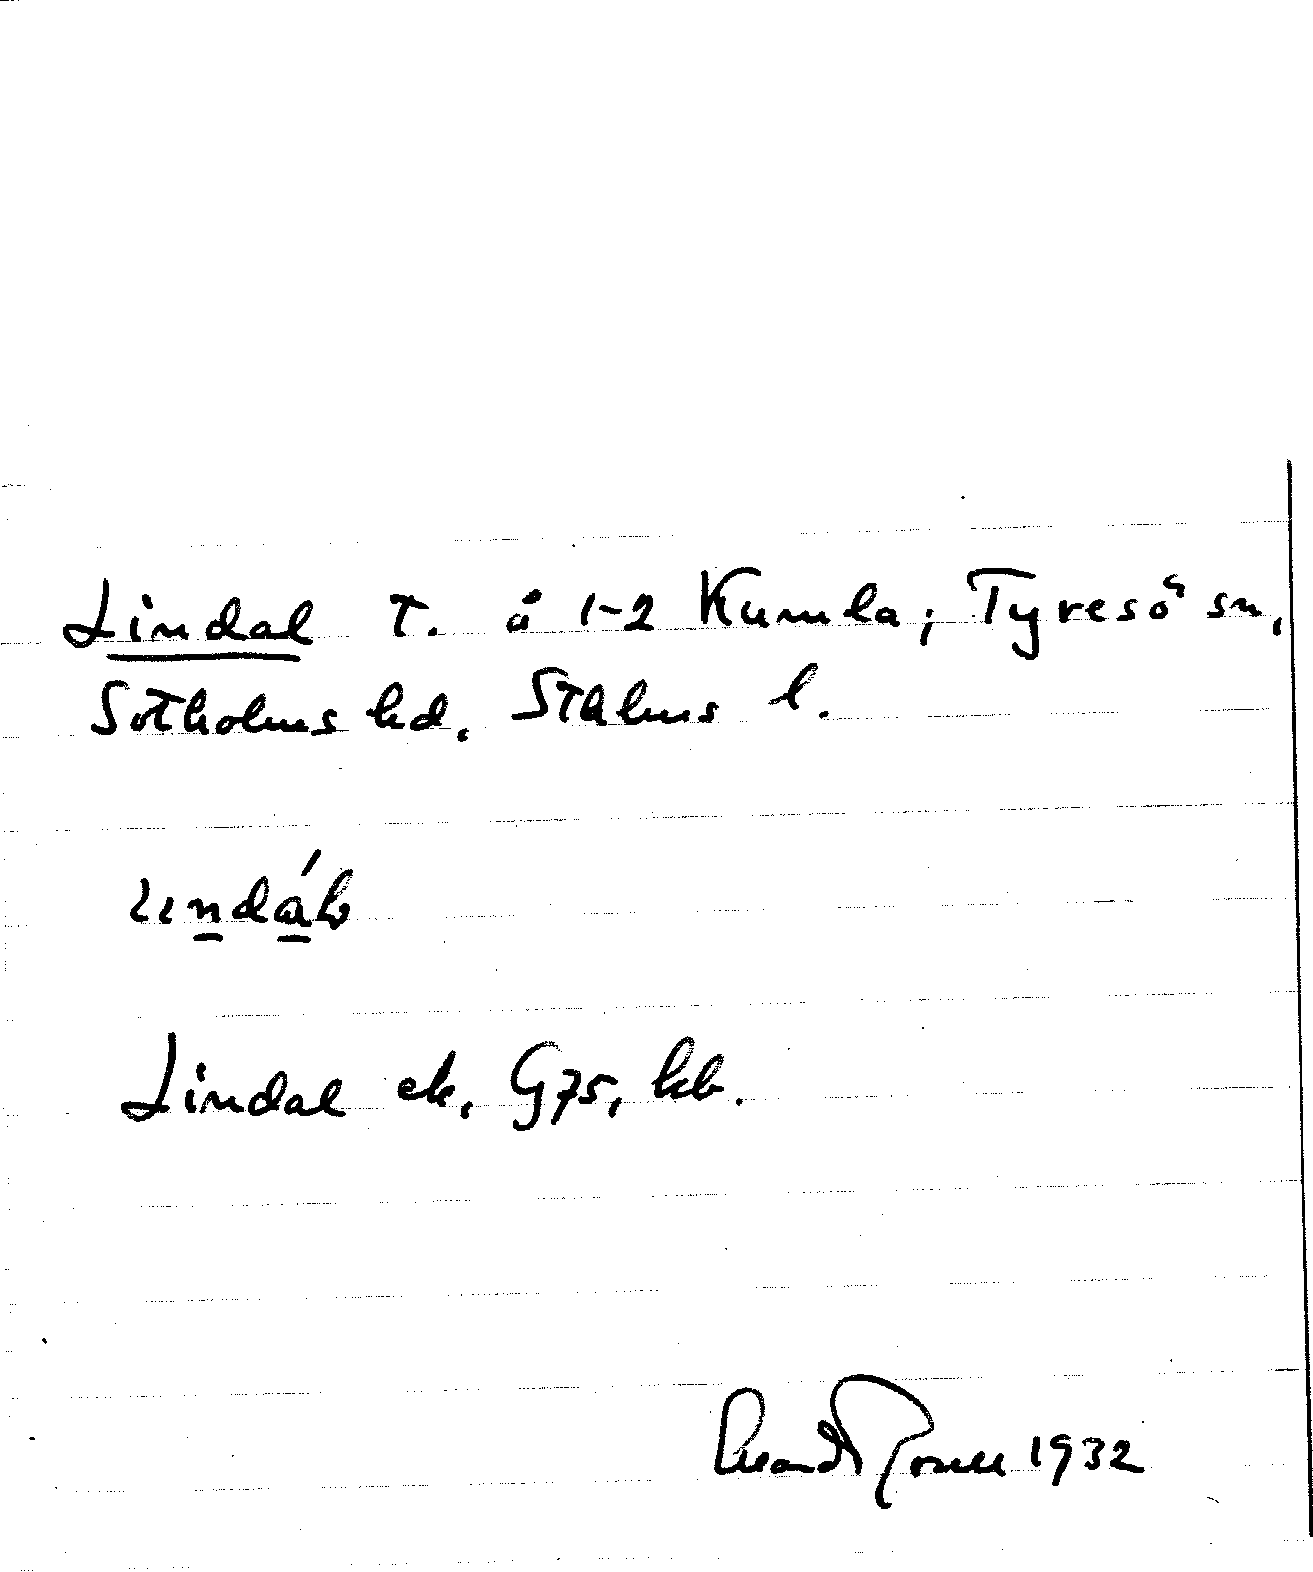 Lindal T. å 1-2 Kumla, Tyresö sn,
Sotholms hd, Sthlms l.
Lindal ek, G75, hb.
1932